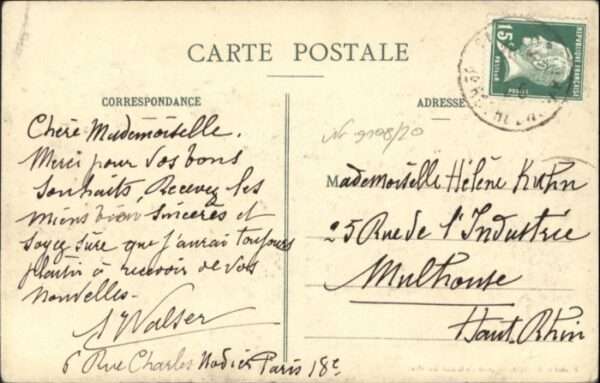 CARTE POSTALE
CORRESPONDANCE
Chère Mademoiselle.
Merci pour vos bons
souhaits, Recevez les
miens bien sincères et
soyez sûre que j'aurai toujours
plaisir à recevoir de vos
nouvelles.
Walser
6 Rue Charles Nodier Paris 18e
ADRESSE
Nr 9198/20
Mademoiselle Hélène Kuhn
25 Rue de l'Industrie
Mulhouse
Haut. Rhin
15c
REPUBLIQUE FRANÇAISE
PASTEUR
POSTES